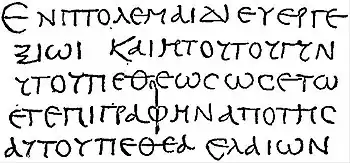 ΕΝΠΤΟΛΕΜΑΙΔΙΕΥΕΡΓΕ
ΞΙΩΙ ΚΑΙΗΤΟΥΤΟΥΓΥΝ
ΥΤΟΥΠΕΘΕΩϹΩϹΕΤΩ
ΕΤΕΠΙΓΡΑΦΗΝΑΠΟΤΗϹ
ΑΥΤΟΥΠΕΘΕΑ ΕΛΑΙΩΝ